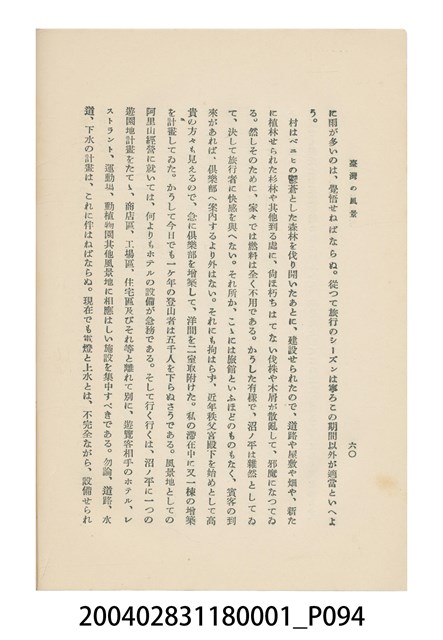 臺灣の風景
六〇
に雨が多いのは、覺悟せねばならぬ。從つて旅行のシーズンは寧ろこの期間以外が適當といへよ
う。
村はベニヒの鬱蒼とした森林を伐り開いたあとに、建設せられたので、道路や屋敷や畑や、新た
に植林せられた杉林や其他到る處に、尙ほ朽ちはてない伐株や木屑が散亂して、邪魔になつてゐ
る。然しそのために、家々では燃料は全く不用である。かうした有樣で、沼ノ平は雜然としてゐ
て、決して旅行者に快感を與へない。それ所か、こゝには旅館といふほどのものもなく、賓客の到
來があれば、俱樂部へ案內するより外はない。それにも拘はらず、近年秩父宮殿下を始めとして高
貴の方々も見えるので、急に俱樂部を增築して、洋間を二室取附けた。私の滯在中に又一棟の增築
を計畫してゐた。かうして今日でも一ケ年の登山者は五千人を下らぬさうである。風景地としての
阿里山經營に就いては、何よりもホテルの設備が急務である。そして行く行くは、沼ノ平に一つの
遊園地計畫をたてゝ、商店區、工場區、住宅區及びそれ等と離れて別に、遊覽客相手のホテル、レ
ストラント、運動場、動植物園其他風景地に相應はしい施設を集中すべきである。勿論、道路、水
道、下水の計畫は、これに件はねばならぬ。現在でも電燈と上水とは、不完全ながら、設備せられ
200402831180001_P094